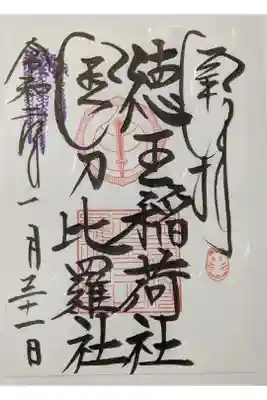 奉拝
徳王稲荷社
金刀比羅社
令和 年一月三十一日